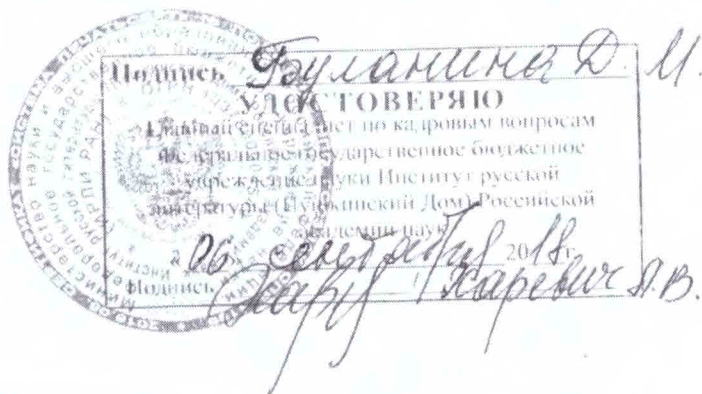 Подпись Буланина Д. М.
УДОСТОВЕРЯЮ
Главный специалист по кадровым вопросам
Федеральное государственное бюджетное
учреждение науки Институт русской
литературы (Пушкинский Дом) Российской
академии наук
"06" сентября 2018г.
Подпись / Харевич А.В.
Министерство науки и высшего образования